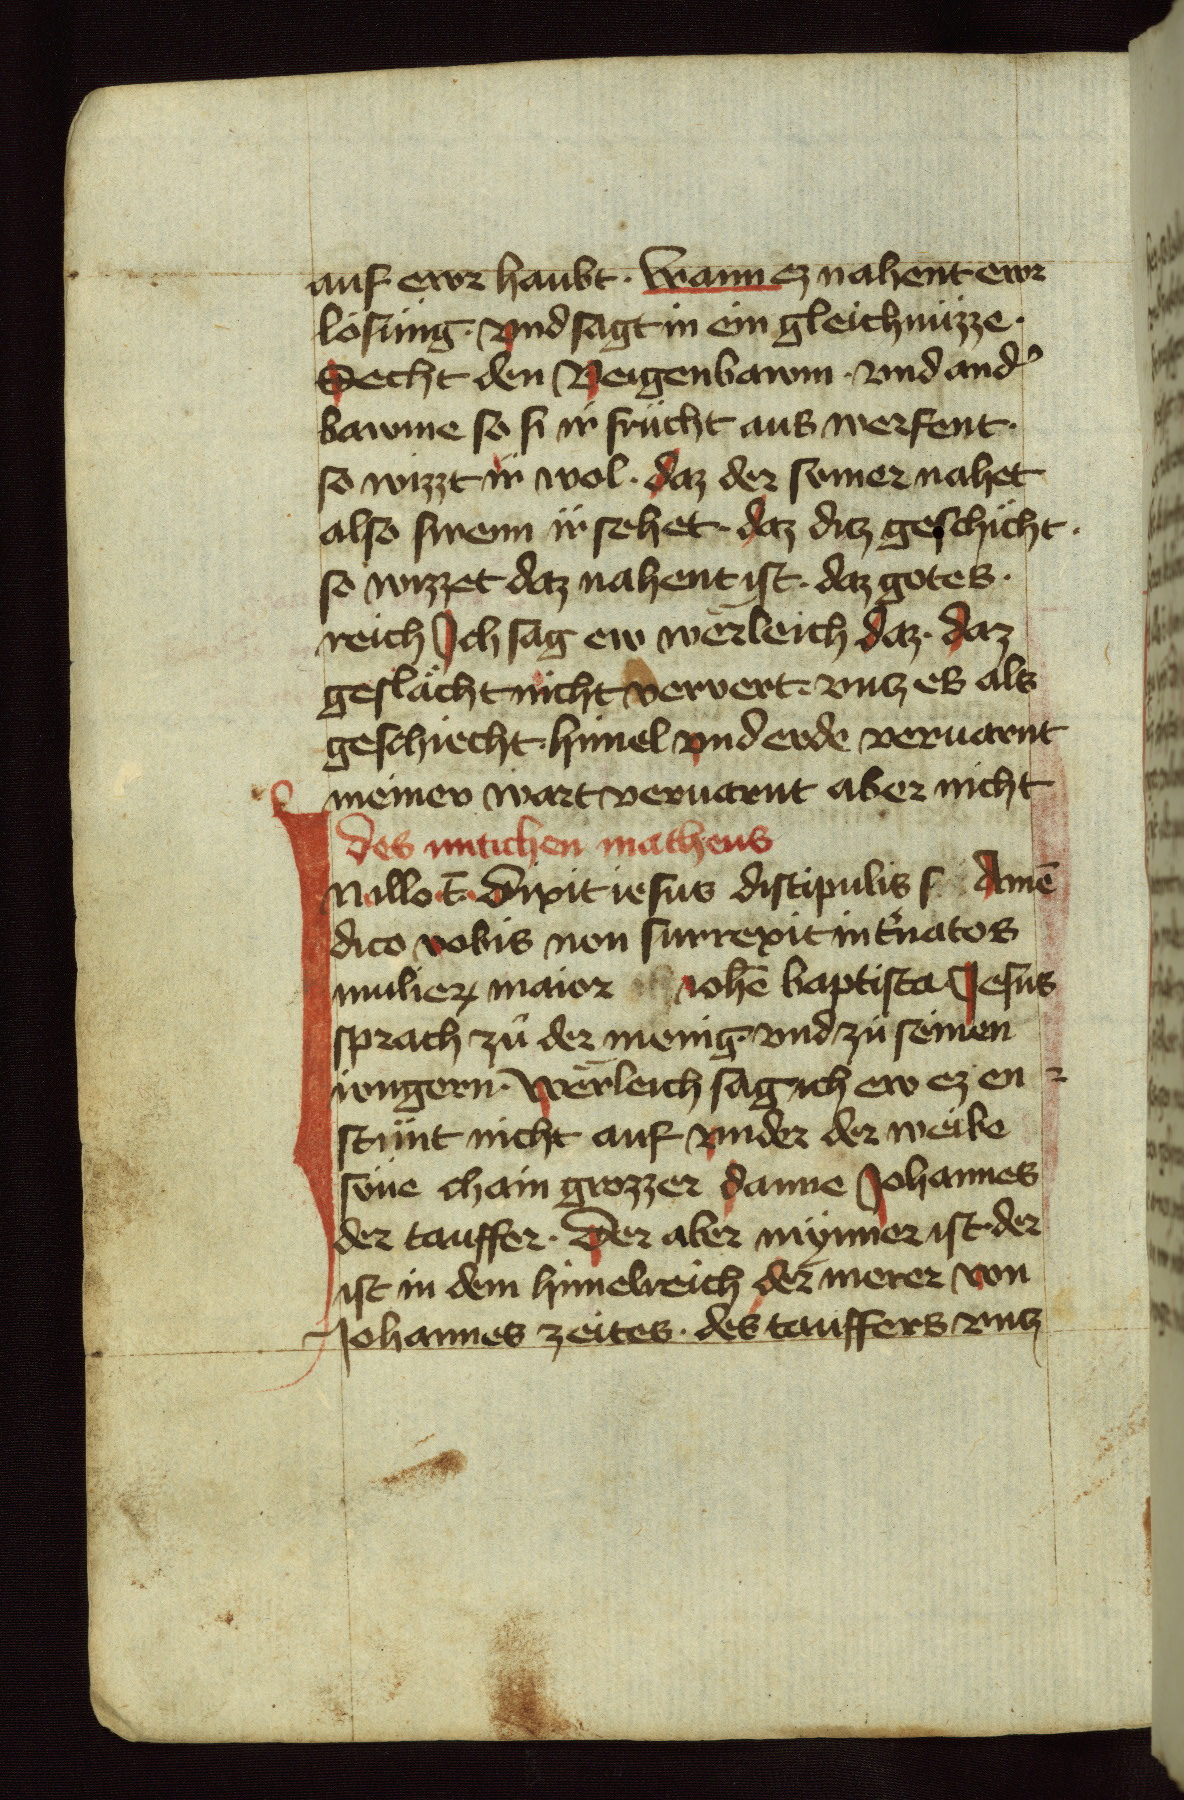 auf ewr haubt · Wann ez nahent ewr
lösung · vnd sagt in ein gleichnüzze ·
Secht den Veigenbawm · vnd and̾
bawme so si ir frücht aus werfent ·
so wizzt ir wol · daz der somer nahet
also swenn ir sehet · daz ditz geschicht ·
so wizzet daz nahent ist · daz gotes ·
reich Ich sag ew werleich daz · daz
geslächt nicht ververt · vntz es als
geschiecht · himel vnd erde veruarnt
meinev wart veruarnt aber nicht
des mitichen matheus
N illo t̄ · Dixit iesus discipulis s Amē
dico vobis non surrexit int̾ natos
mulieꝝ maior iohē baptista Jesus
sprach zů der menig · vnd zů seinen
iungern · Werleich sag ich ew ez en
stůnt nicht auf vnder der weibe
süne chain grozzer danne Johannes
der tauffer · Der aber mynner ist · der
ist in dem himelreich der merer von
Johannes zeites · des tauffers vntz